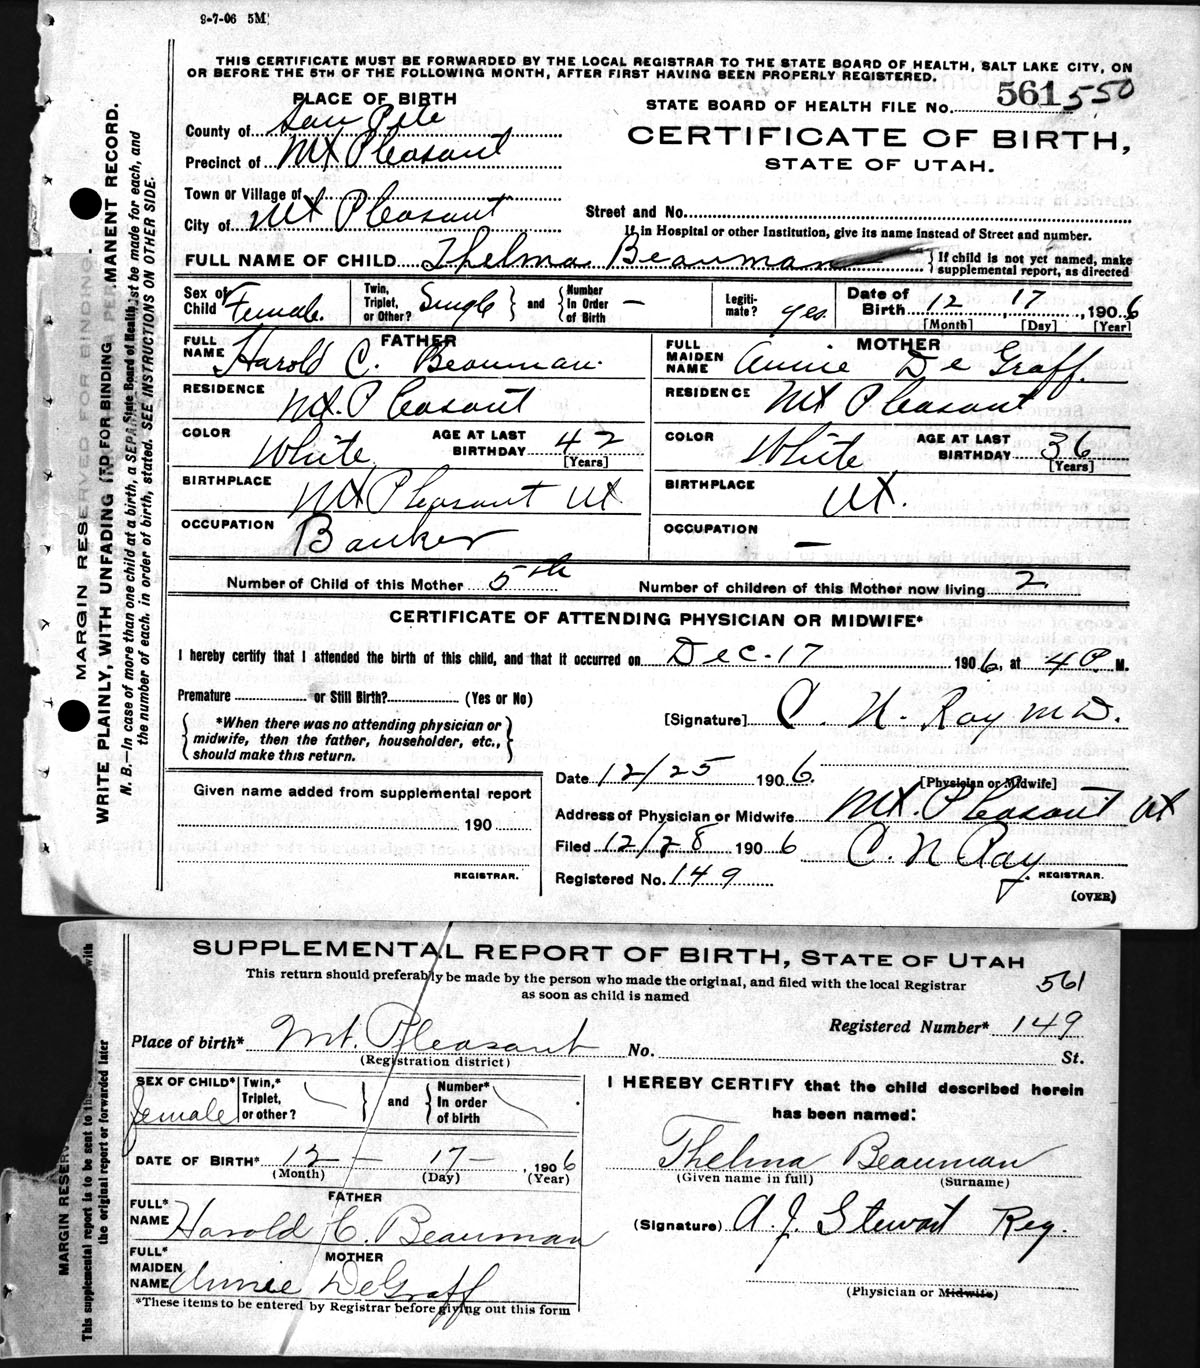 9-7-06 5M
THIS CERTIFICATE MUST BE FORWARDED BY THE LOCAL REGISTRAR TO THE STATE BOARD OF HEALTH, SALT LAKE CITY, ON
OR BEFORE THE 5TH OF THE FOLLOWING MONTH, AFTER FIRST HAVING BEEN PROPERLY REGISTERED.
PLACE OF BIRTH
STATE BOARD OF HEALTH FILE No. 561 550
County of San Pete
CERTIFICATE OF BIRTH,
Precinct of Mt Pleasant
STATE OF UTAH.
Town or Village of
City of Mt Pleasant
Street and No.
If in Hospital or other Institution, give its name instead of Street and number.
FULL NAME OF CHILD Thelma Beauman
{ If child is not yet named, make
supplemental report, as directed
Sex of Child Female.
Twin, Triplet, or Other? Single } and { Number In Order of Birth —
Legiti-mate? yes
Date of Birth 12, 17, 1906
[Month] [Day] [Year]
FATHER
FULL NAME Harold C. Beauman.
RESIDENCE Mt. Pleasant
COLOR White
AGE AT LAST BIRTHDAY 42
[Years]
BIRTHPLACE Mt Pleasant Ut
OCCUPATION Banker
MOTHER
FULL MAIDEN NAME Annie De Graff.
RESIDENCE Mt Pleasant
COLOR White
AGE AT LAST BIRTHDAY 36
[Years]
BIRTHPLACE Ut.
OCCUPATION —
Number of Child of this Mother 5th Number of children of this Mother now living 2
CERTIFICATE OF ATTENDING PHYSICIAN OR MIDWIFE*
I hereby certify that I attended the birth of this child, and that it occurred on Dec. 17 1906, at 4 P. M.
Premature or Still Birth? (Yes or No)
[Signature] C. N. Ray M.D.
{ *When there was no attending physician or
midwife, then the father, householder, etc.,
should make this return. }
[Physician or Midwife]
Date 12/25 1906.
Address of Physician or Midwife Mt. Pleasant Ut
Filed 12/28 1906 C. N Ray
REGISTRAR.
Registered No. 149
(OVER)
Given name added from supplemental report
190
REGISTRAR.
MARGIN RESERVED FOR BINDING.
WRITE PLAINLY, WITH UNFADING
MANENT RECORD.
N. B.—In case of more than one child at a birth, a
must be made for each, and
the number of each, in order of birth, stated. SEE INSTRUCTIONS ON OTHER SIDE.
SUPPLEMENTAL REPORT OF BIRTH, STATE OF UTAH
This return should preferably be made by the person who made the original, and filed with the local Registrar
as soon as child is named
561
Registered Number* 149
Place of birth* Mt. Pleasant No. St.
(Registration district)
SEX OF CHILD* female
Twin,* Triplet, or other? } and { Number* In order of birth
DATE OF BIRTH* 12 — 17 — , 1906
(Month) (Day) (Year)
FATHER
FULL* NAME Harold C. Beauman
MOTHER
FULL* MAIDEN NAME Annie DeGraff
*These items to be entered by Registrar before giving out this form
I HEREBY CERTIFY that the child described herein
has been named:
Thelma Beauman
(Given name in full) (Surname)
(Signature) A. J. Stewart Reg.
(Physician or Midwife)
MARGIN RESERV
This supplemental report is to be sent to the
with
the original report or forwarded later